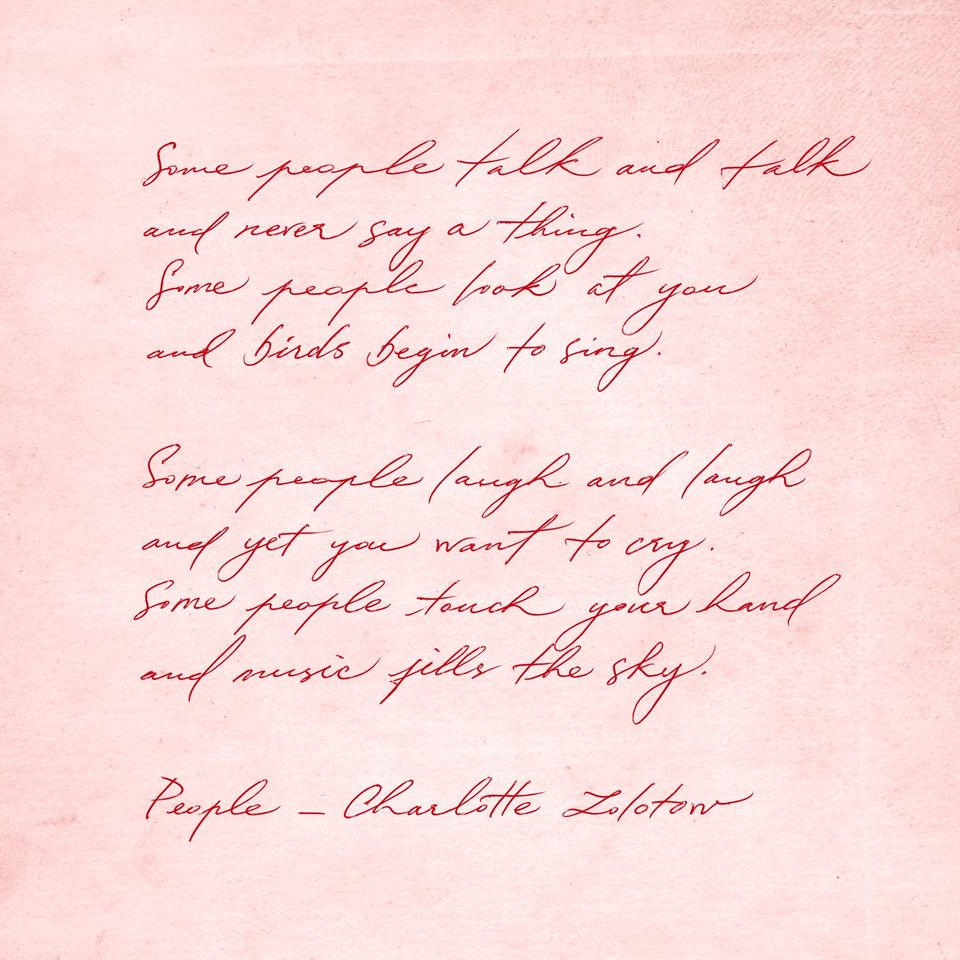 Some people talk and talk
and never say a thing.
Some people look at you
and birds begin to sing.
Some people laugh and laugh
and yet you want to cry.
Some people touch your hand
and music fills the sky.
People – Charlotte Zolotow